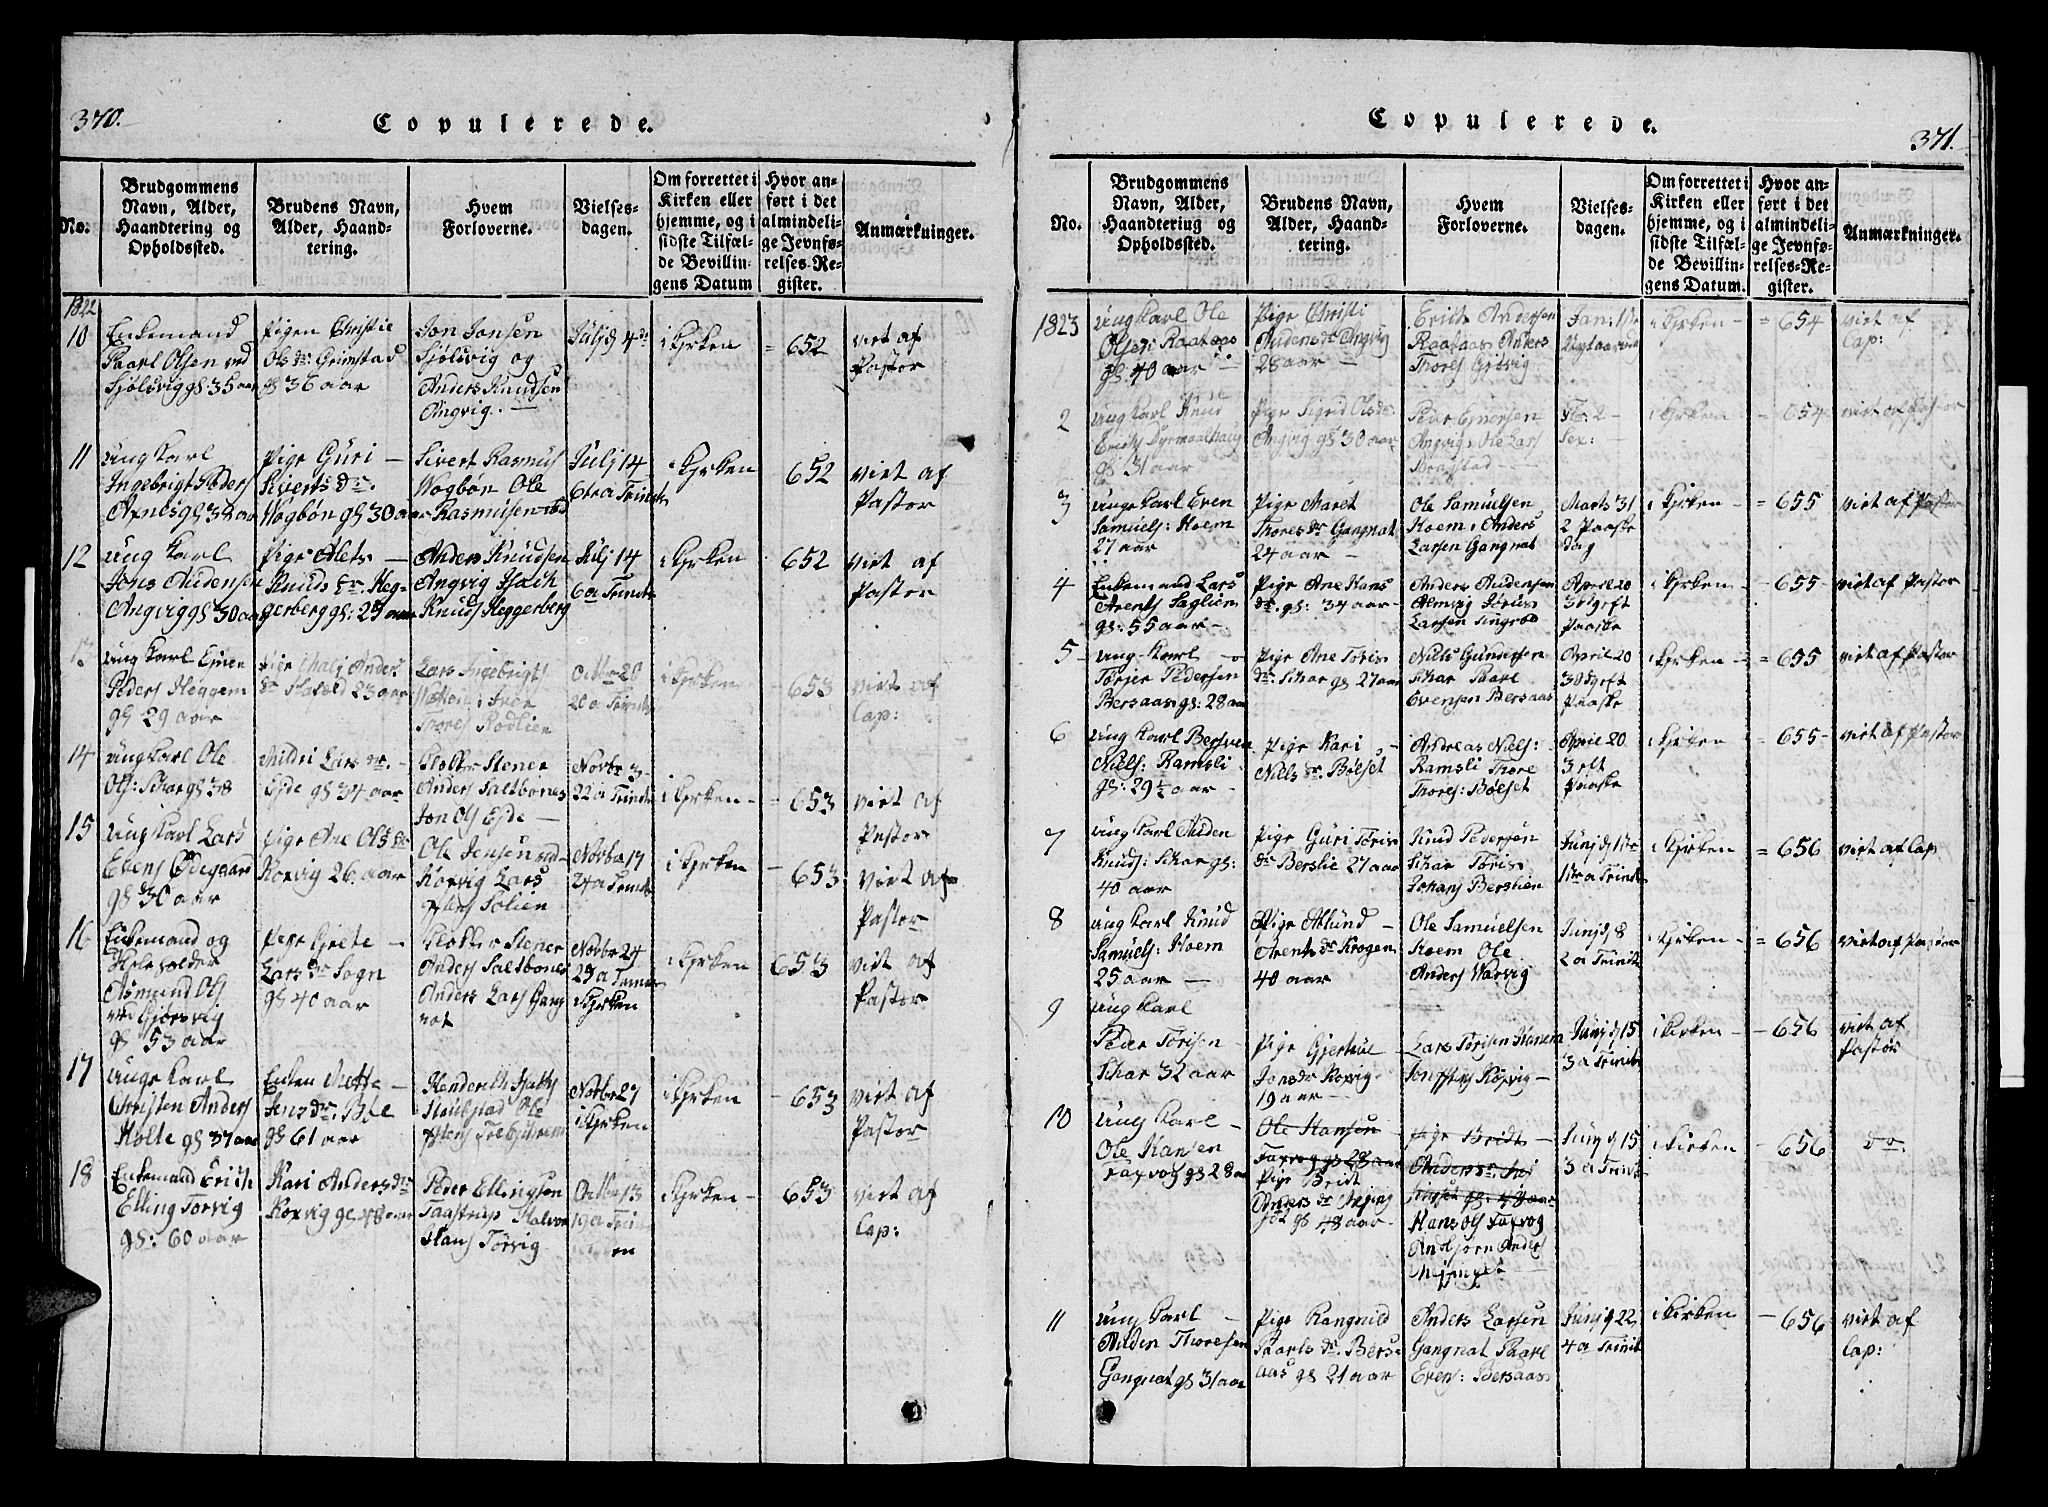 370.
Copulerede.
No:
Brudgommens
Navn, Alder,
Haandtering og
Opholdssted.
Brudens Navn,
Alder, Haand-
tering.
Hvem
Forloverne.
Vielses-
dagen.
Om forrettet i
Kirken eller
hjemme, og i
sidste Tilfæl-
de Bevillin-
gens Datum
Hvor an-
ført i det
almindeli-
ge Jevnfø-
relses-Re-
gister.
Anmærkninger.
1822
10
Enkemand
Paarl Olsen ved
Sjølsvig gl 35 aar
Pigen Christie
Ols dr. Grimstad
gl 36 aar
Jon Jonsen
Sjølsvig og
Anders Knudsen
Angvig.
Julj d 4de
i Kirken
= 652
viet af
Pastor
11
Ung Karl
Ingebrigt Peders
Axnes gl 38 aar
Pige Guri
Siverts dr.
Wogbøn gl 30 aar
Sivert Rasmus
Wogbøn Ole
Rasmusen ibd
Julj 14
6te a Trinit
i Kirken
652
viet af
Pastor
12
Ung Karl
Jons Audensen
Angvig gl 30 aar
Pige Alets
Knuds dr Heg-
gerberg gl: 25 aar
Anders Knudsen
Angvig
Knuds Heggerberg
Julj 14
6 a Trinit
i Kirken
652
viet af
Pastor
13
Ung Karl Einer
Peders Heggem
gl 29 aar
Pige Anders
dr 23 aar
Lars Ingebrigts
Iver
Thores Rodlien
Octbr 20
20 a Trinit
i Kirken
- 653
viet af
Cap:
14
Ung Karl Ole
Ols: Schar gl 38
Mildri Lars dr.
Eyde gl 34 aar
Klokker Stener
Anders Saltbones
Jon Ols Eyde
Novbr 3
22 a Trinit
i Kirken
= 653
viet af
Pastor
15
Ung Karl Lars
Ellens Ødegaard
gl 30 aar
Pige Ane Ols dr
Roxvig 26 aar
Ole Jensen ved
Roxvig Lars
Solien
Novbr 17
24 a Trinit
i Kirken
- 653
viet af
Pastor
16
Enkemand og
Asmund Ols
gl 53 aar
Pige Grete
Lars dr Sogn
gl 40 aar
Klokker Stener
Anders Saltbones
Anders Lars Gang
nat
Novbr 24
25 a Trinit
i Kirken
i Kirken
653
viet af
Pastor
17
Unge Karl
Christen Anders
Holte gl 37 aar
Enken Mette
Jens dr. Bøe
gl 61 aar
Ole
Novbr 27
i Kirken
i Kirken
- 653
viet af
Pastor
18
Enkemand Erich
Elling Torvig
gl: 60 aar
Kari Anders dr
Roxvig gl 48 aar
Peder Ellingsen
Hans Torvig
Octbr 13
19 a Trinit
i Kirken
653
viet af
Cap:
Copulerede.
371.
No.
Brudgommens
Navn, Alder,
Haandtering og
Opholdssted.
Brudens Navn,
Alder, Haand-
tering.
Hvem
Forloverne.
Vielses-
dagen.
Om forrettet i
Kirken eller
hjemme, og i
sidste Tilfæl-
de Bevillin-
gens Datum.
Hvor an-
ført i det
almindeli-
ge Jevnfø-
relses-Re-
gister.
Anmærkninger.
1823
Ung Karl Ole
Olsen Raataas
gl: 40 aar
Pige Christi
Audens dr Angvig
28 aar
Erich Andersen
Raataas Anders
Thores Gjøvig
Jan: 1ste
Nytaarsdag
i Kirken
= 654
viet af
Cap:
2
Ung Karl Knud
Erichs
gl 31 aar
Pige Sigrid Ols dr
Angvig gl 30 aar
Peder Einersen
Angvig Ole Lars
2
Sex:
i Kirken
= 654
viet af Pastor
3
Unge Karl Even
Samuels: Hoem
27 aar
Pige Maret
Thores dr Gangnat
24 aar
Ole Samuelsen
Hoem, Anders
Larsen Gangnat
Marts 31
2 Paaske
dag
i Kirken
= 655
viet af Pastor
4
Enkemand Lars
Arents Saglien
gl: 55 aar
Pige Ane Hans
dr. gl: 34 aar
Anders Audensen
Larsen
April 20
3 Sept
Paaske
i Kirken
- 655
viet af Pastor
5
Ung Karl
Torjer Pedersen
Bersaas gl: 28 aar
Pige Ane Toris
dr. Schar gl 27 aar
Niels Gundersen
Schar Paarl
Evensen Bersaas
April 20
Paaske
i Kirken
= 655
viet af Pastor
6
Ung Karl Bersven
Niels: Ramsli
gl: 29 1/2 aar
Pige Kari
Niels dr. Bølset
Andreas Niels:
Ramsli Thore
Thores: Bølset
April 20
Paaske
i Kirken
= 655
viet af Pastor
7
Ung Karl Auden
Knuds: Schar gl:
40 aar
Pige Guri Toris
dr Berslie 27 aar
Knud Pedersen
Schar Toris
Johans Berslien
Junj d 1ste
1ste a Trinit
i Kirken
= 656
viet af Cap
8
Ung Karl Knud
Samuels: Hoem
25 aar
Pige Aslund
Arents dr Krogen
40 aar
Ole Samuelsen
Hoem Ole
Anders Warvig
Junj d 8
2 a Trinit
i Kirken
= 656
viet af Pastor
9
Ung Karl
Peder Torisen
Schar 32 aar
Pige Gjertrue
Jons dr Roxvig
19 aar
Lars Torisen
Roxvig
Junj d 15
3 a Trinit
i Kirken
- 656
viet af
Pastor
10
Ung Karl
Ole Hansen
Faxvog gl 28 aar
Ole Hansen
Faxvog gl 28 aar
Pige Bridt
Anders dr
gl 48 aar
Pige Bridt
Anders dr
gl: 48 aar
Hans Ols Faxvog
Anders
Junj d 15
3 a Trinit
i Kirken
656
do
11
Ung Karl
Auden Thoresen
Gangnat gl 31 aar
Pige Rangnild
Paarls dr. Bers-
aas gl 21 aar
Anders Larsen
Gangnat Paarl
Evens: Bersaas
Junj d 22
4 a Trinit
i Kirken
- 656
viet af
Cap: